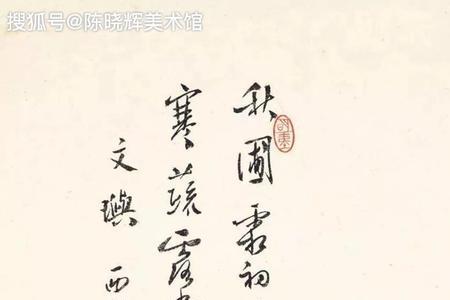 搜狐号@陈晓辉美术馆
秋圃霜初
寒蔬露
文璵西